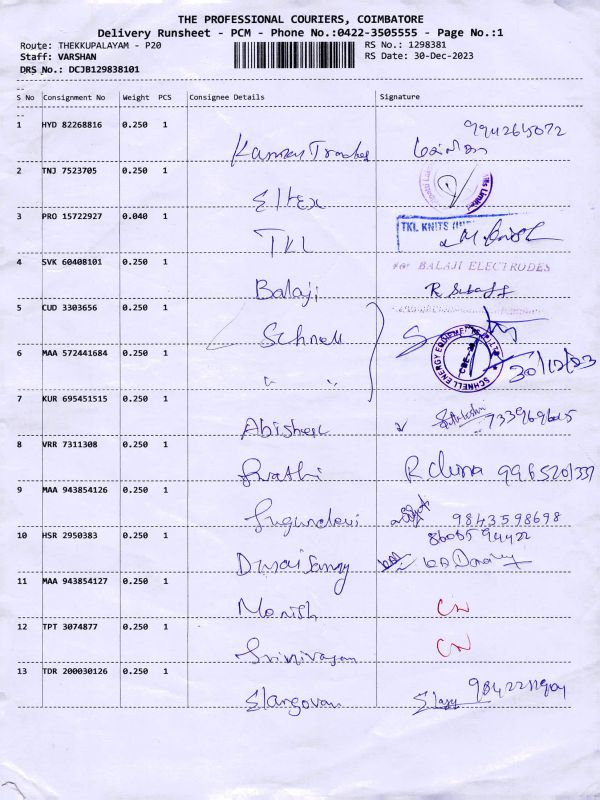 THE PROFESSIONAL COURIERS, COIMBATORE
Delivery Runsheet - PCM - Phone No.:0422-3505555 - Page No.:1
Route: THEKKUPALAYAM - P20
RS No.: 1298381
Staff: VARSHAN
RS Date: 30-Dec-2023
DRS No.: DCJB129838101
S No Consignment No Weight PCS Consignee Details Signature
1 HYD 82268816 0.250 1
2 TNJ 7523705 0.250 1 Eltex
3 PRO 15722927 0.040 1 TKL TKL KNITS
4 SVK 60408101 0.250 1 Balaji For BALAJI ELECTRODES
5 CUD 3303656 0.250 1 Schnell
6 MAA 572441684 0.250 1 " " SCHNELL ENERGY EQUIPMENTS 30/12/23
7 KUR 695451515 0.250 1 Abishek
8 VRR 7311308 0.250 1 Swathi
9 MAA 943854126 0.250 1 Sugundevi 9843598698
10 HSR 2950383 0.250 1 Duraisamy
11 MAA 943854127 0.250 1 Monish
12 TPT 3074877 0.250 1 Srinivasan
13 TDR 200030126 0.250 1 Elangovan